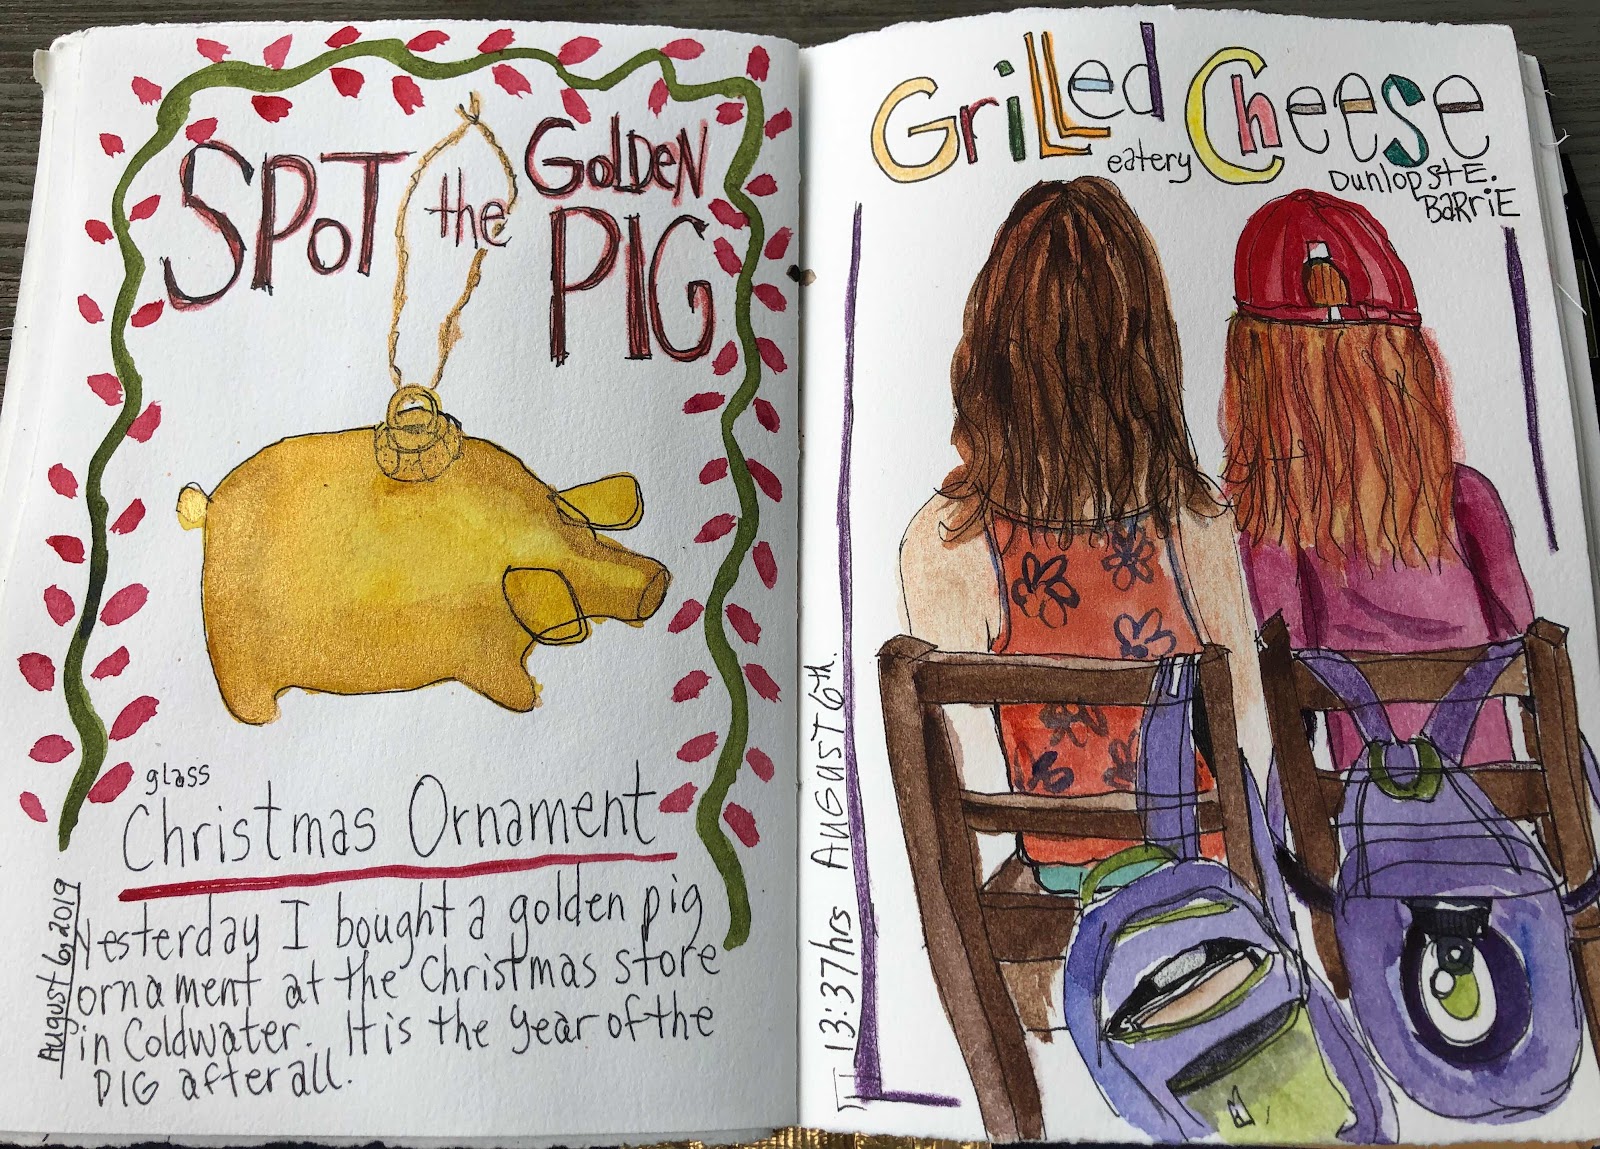 SPOT the GOLDEN
PIG
glass
Christmas Ornament
August 6, 2019
Yesterday I bought a golden pig
ornament at the Christmas store
in Coldwater. It is the year of the
PIG after all.
GriLLed Cheese
eatery
Dunlop St E.
BARRiE
13:37hrs AuGust 6th.